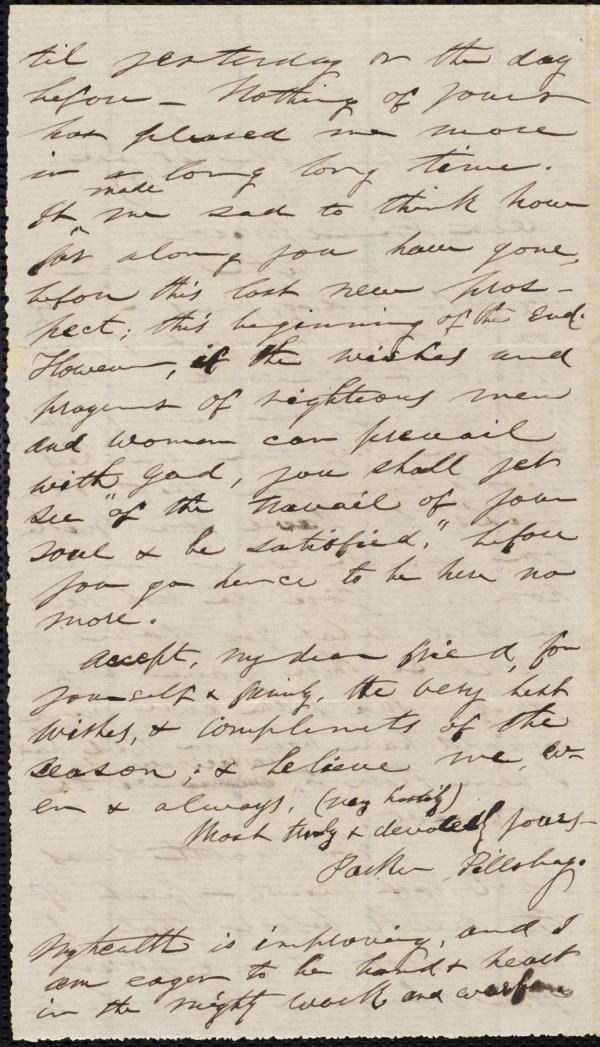 til yesterday or the day
before — Nothing of yours
has pleased me more
in a long long time.
It made me sad to think how
far along you have gone,
before this last new pros-
pect; this "beginning of the End."
However, if the wishes and
prayers of righteous men
and women can prevail
with God, you shall yet
see "of the travail of your
soul & be satisfied," before
you go hence to be here no
more.
Accept, my dear friend, for
yourself & family, the very best
wishes, & compliments of the
season; & believe me, ev-
er & always, (very hastily)
Most truly & devotedly yours—
Parker Pillsbury.
My health is improving, and I
am eager to be hand & heart
in the might work and warfare